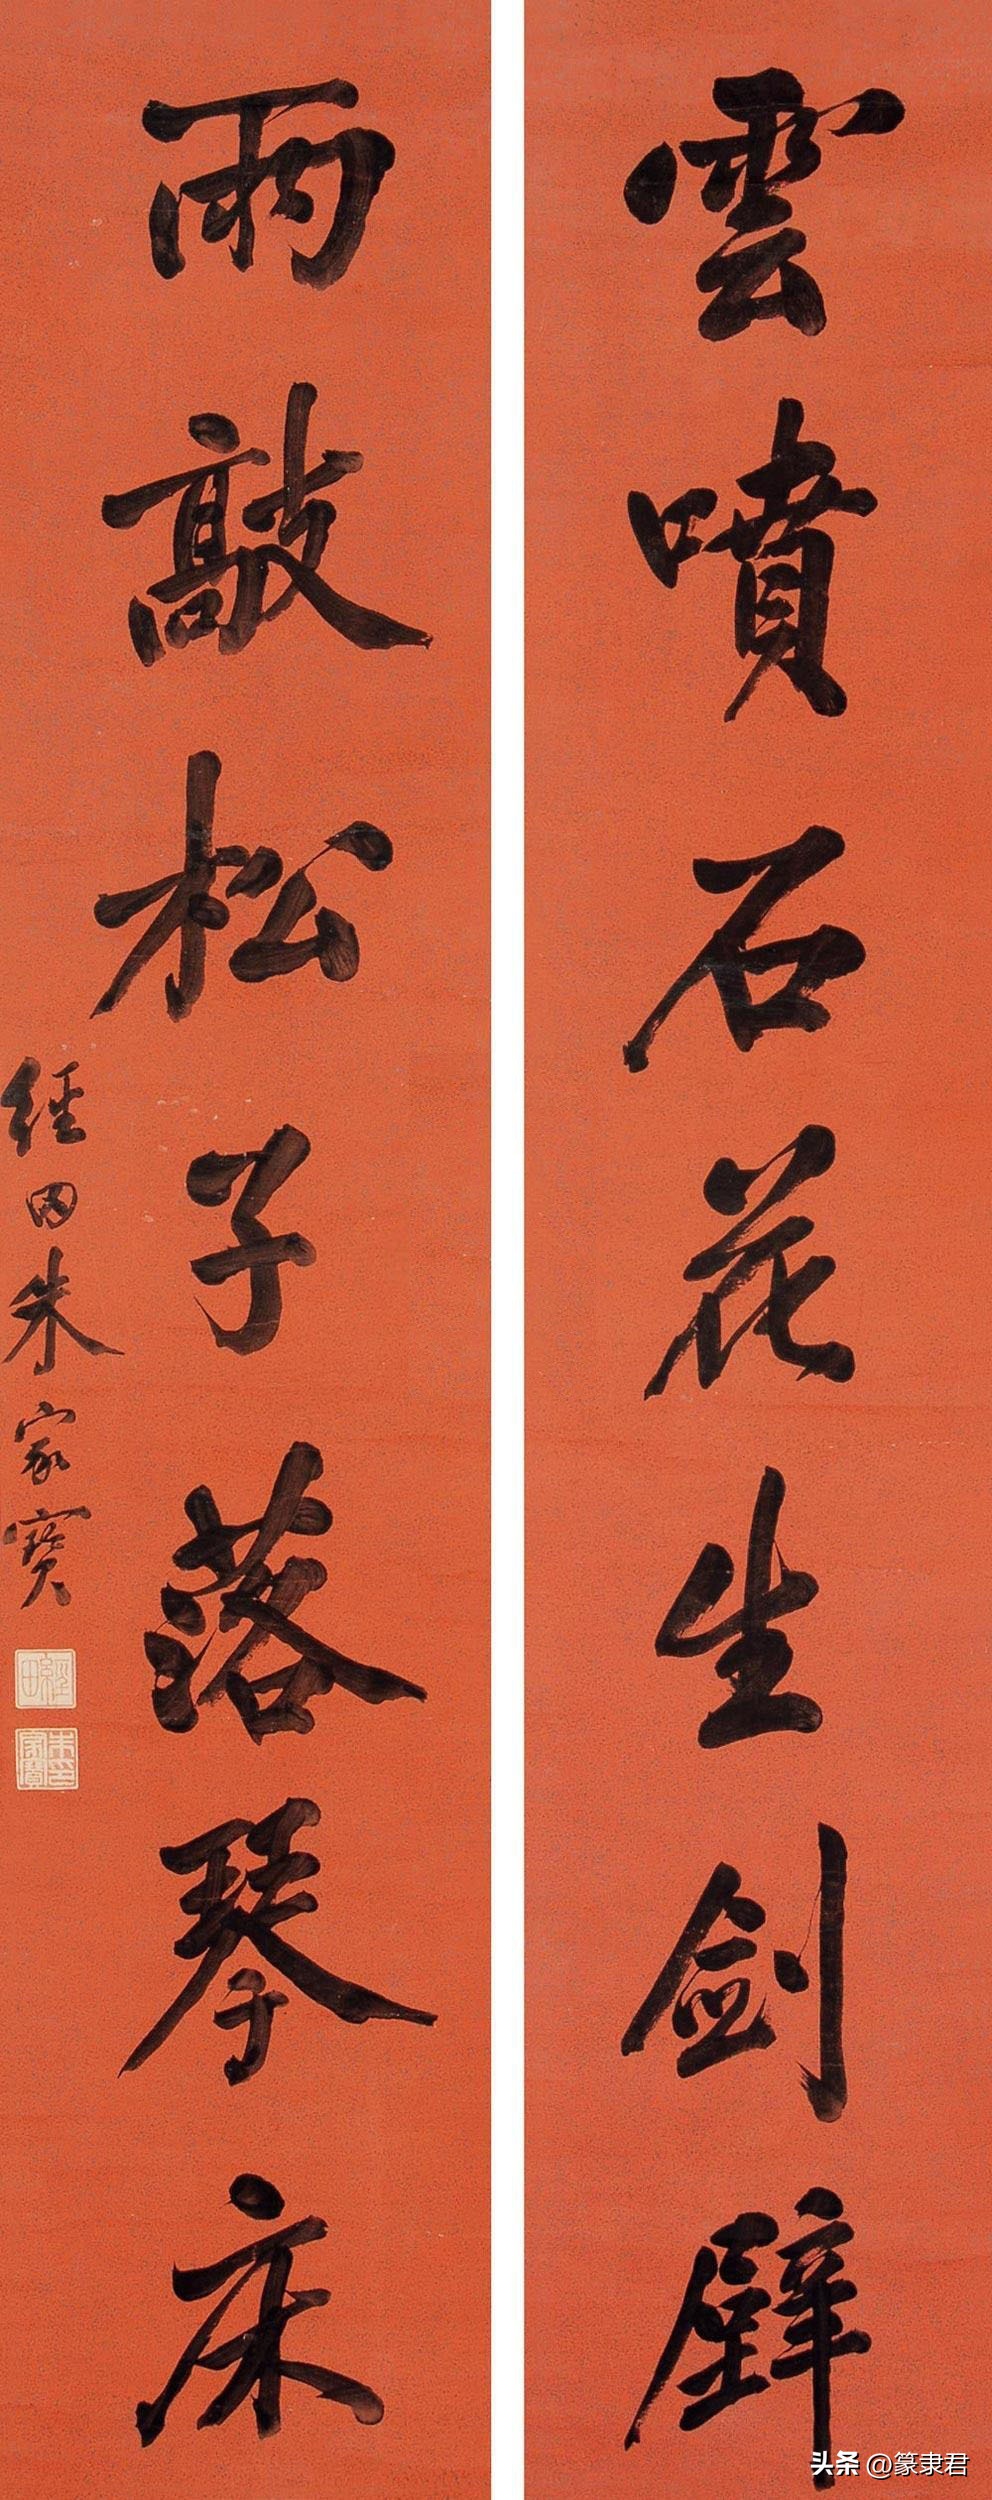 雲噴石花生劍壁
雨敲松子落琴床
經田朱家寶
經田
朱家寶印
头条 @篆隶君